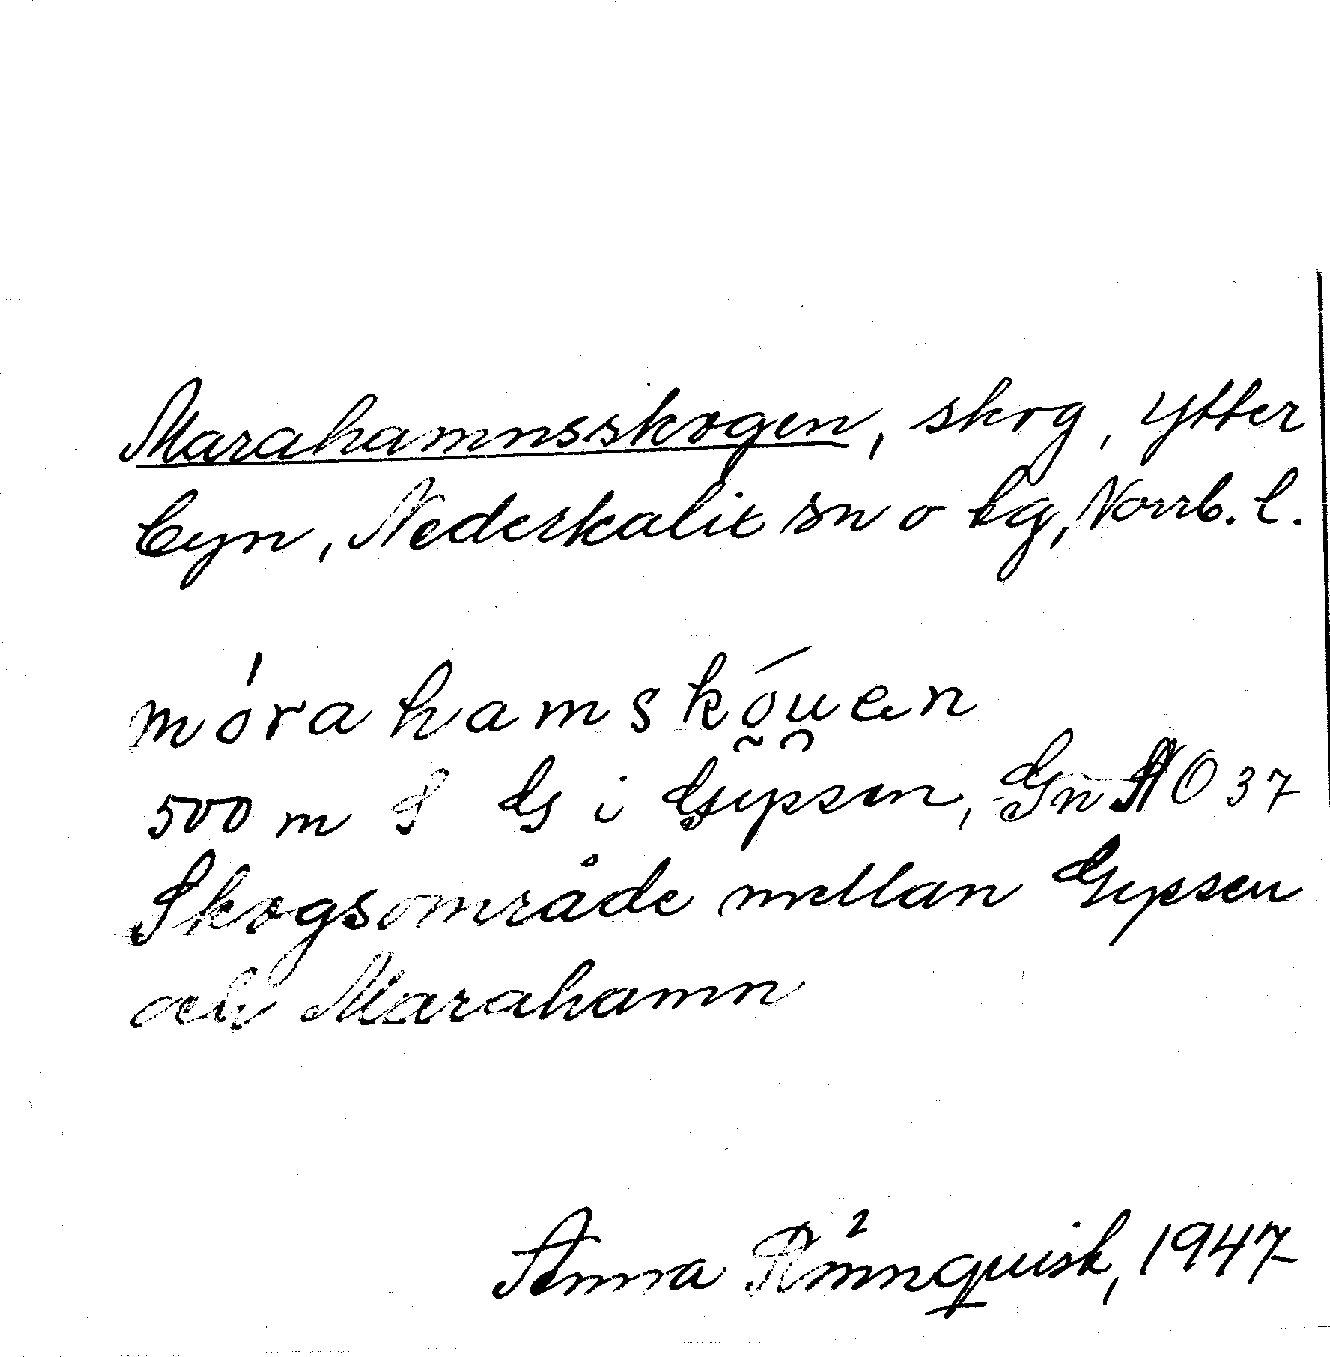 Marahamnsskogen, skog, Ytter
byn, Nederkalix sn o tg, Norrb. l.
mórahamskǫ́u̯en
500 m S G i Gypsen, Gn HO 37
Skogsområde mellan Gypsen
och Marahamn
Anna Rönnquist, 1947